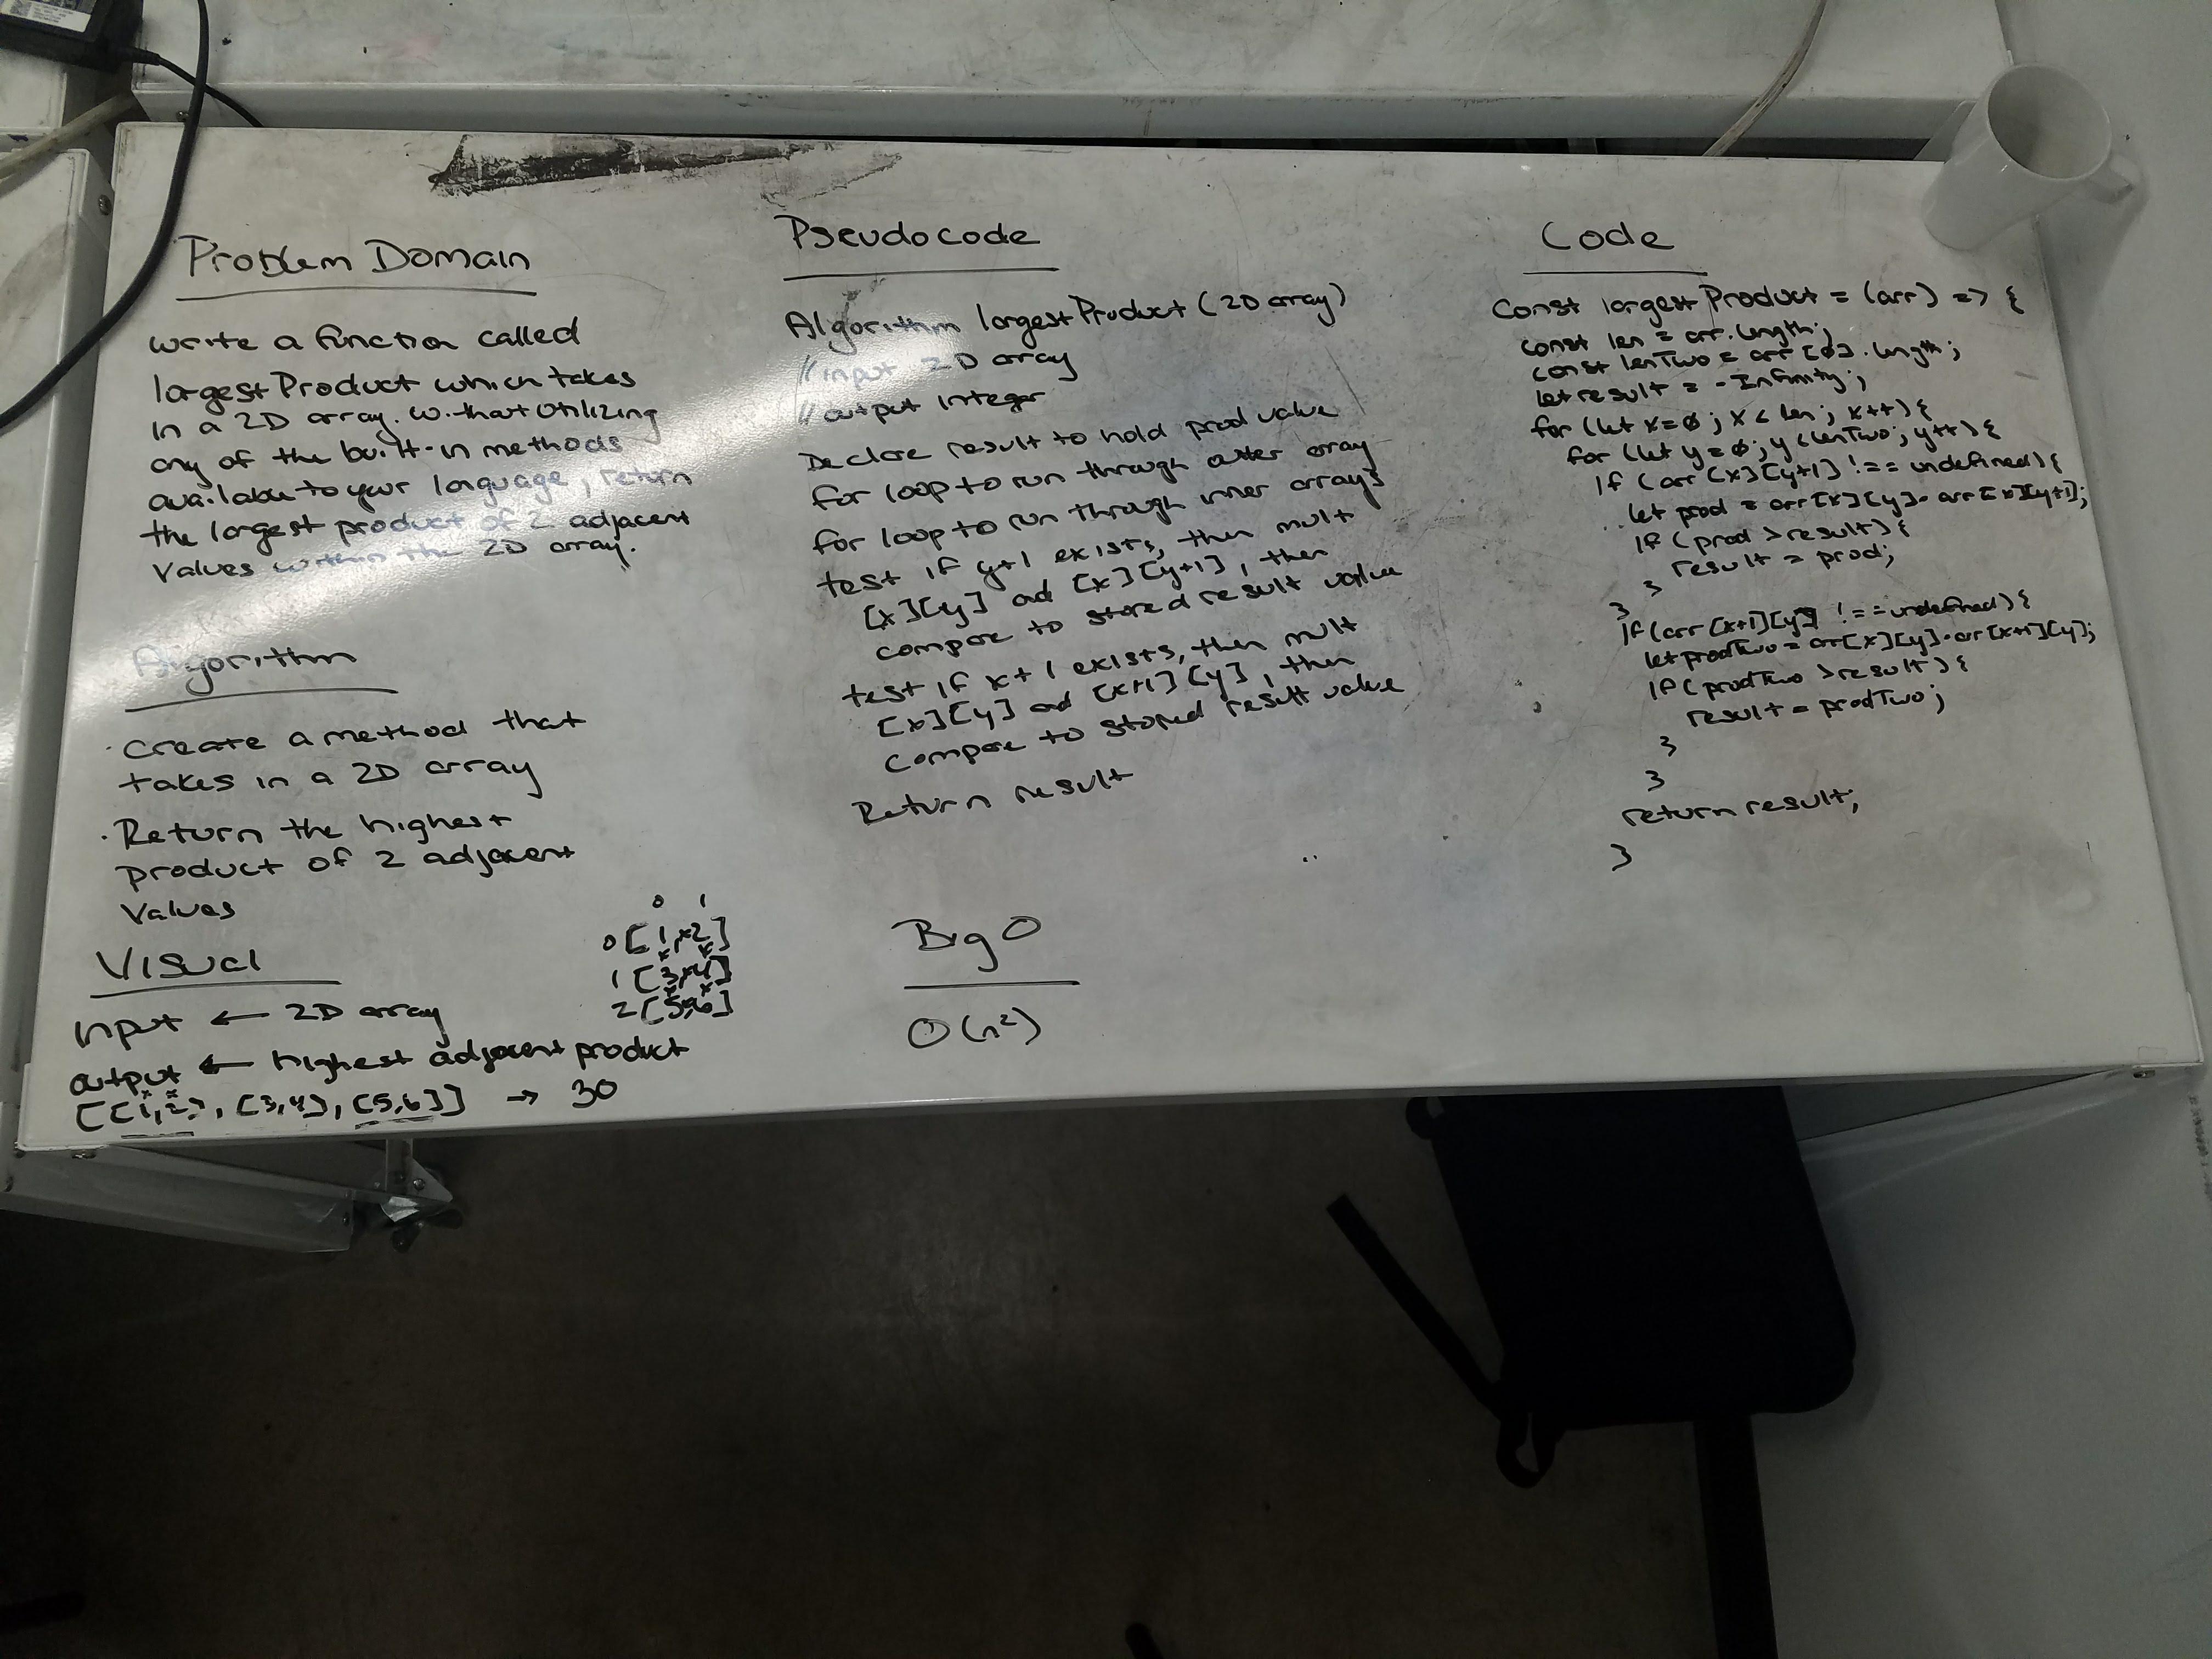 Problem Domain
write a function called
largestProduct which takes
in a 2D array. without utilizing
any of the built-in methods
available to your language, return
the largest product of 2 adjacent
values within the 2D array.
Algorithm
· Create a method that
takes in a 2D array
· Return the highest
product of 2 adjacent
values
Visual
Input ← 2D array
output ← highest adjacent product
[[1,2], [3,4], [5,6]] → 30
0 1
0[1,2]
1[3,4]
2[5,6]
Pseudocode
Algorithm largestProduct (2D array)
// input 2D array
// output integer
Declare result to hold prod value
for loop to run through outer array
for loop to run through inner arrays
test if y+1 exists, then mult
[x][y] and [x][y+1], then
compare to stored result value
test if x+1 exists, then mult
[x][y] and [x+1][y], then
compare to stored result value
Return result
Big O
O(n²)
Code
const largestProduct = (arr) => {
const len = arr.length;
const lenTwo = arr[0].length;
let result = -Infinity;
for (let x=0; x < len; x++) {
for (let y=0; y<lenTwo; y++) {
if (arr[x][y+1] !== undefined) {
let prod = arr[x][y] · arr[x][y+1];
if (prod > result) {
result = prod;
}
}
if (arr[x+1][y] !== undefined) {
let prodTwo = arr[x][y] · arr[x+1][y];
if (prodTwo > result) {
result = prodTwo;
}
}
return result;
}